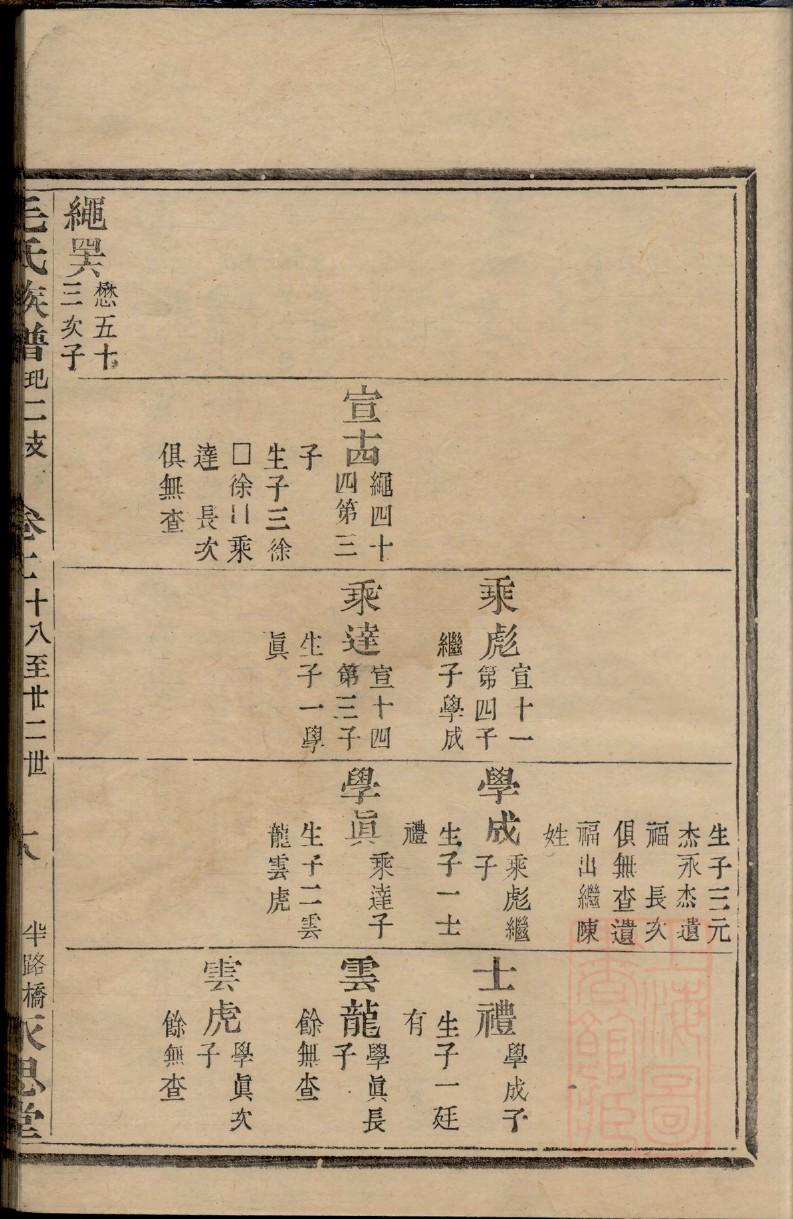 繩異
懋五十
三次子
宣十四
繩四十
四第三
子
生子三徐
□徐〢乘
達 長次
俱無查
乘彪
宣十一
第四子
繼子學成
乘達
宣十四
第三子
生子一學
眞
生子三元
杰永杰遺
福 長次
俱無查遺
福出繼陳
姓
學成
乘彪繼
子
生子一士
禮
學眞
乘達子
生子二雲
龍雲虎
士禮
學成子
生子一廷
有
雲龍
學眞長
子
餘無查
雲虎
學眞次
子
餘無查
毛氏族譜
玘二支
十八至廿二世
半路橋
永思堂